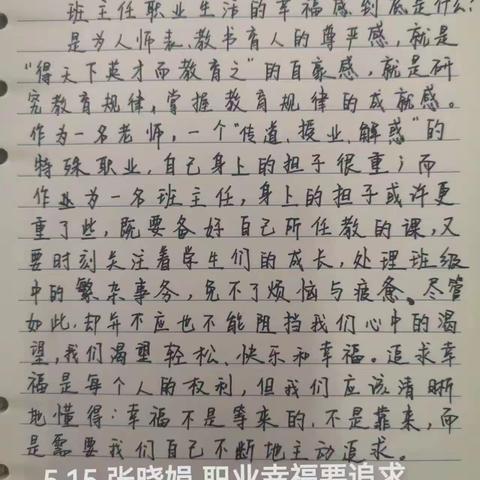 班主任职业生活的幸福感到底是什么?
是为人师表、教书育人的尊严感,就是
“得天下英才而教育之”的自豪感,就是研
究教育规律,掌握教育规律的成就感。
作为一名老师,一个“传道、授业、解惑”的
特殊职业,自己身上的担子很重;而
作为一名班主任,身上的担子或许更
重了些,既要备好自己所任教的课,又
要时刻关注着学生们的成长,处理班级
中的繁杂事务,免不了烦恼与疲惫。尽管
如此,却并不应也不能阻挡我们心中的渴
望,我们渴望轻松、快乐和幸福。追求幸
福是每个人的权利,但我们应该清晰
地懂得:幸福不是等来的,不是靠来,而
是需要我们自己不断地主动追求。
5.15 张晓娟 职业幸福要追求